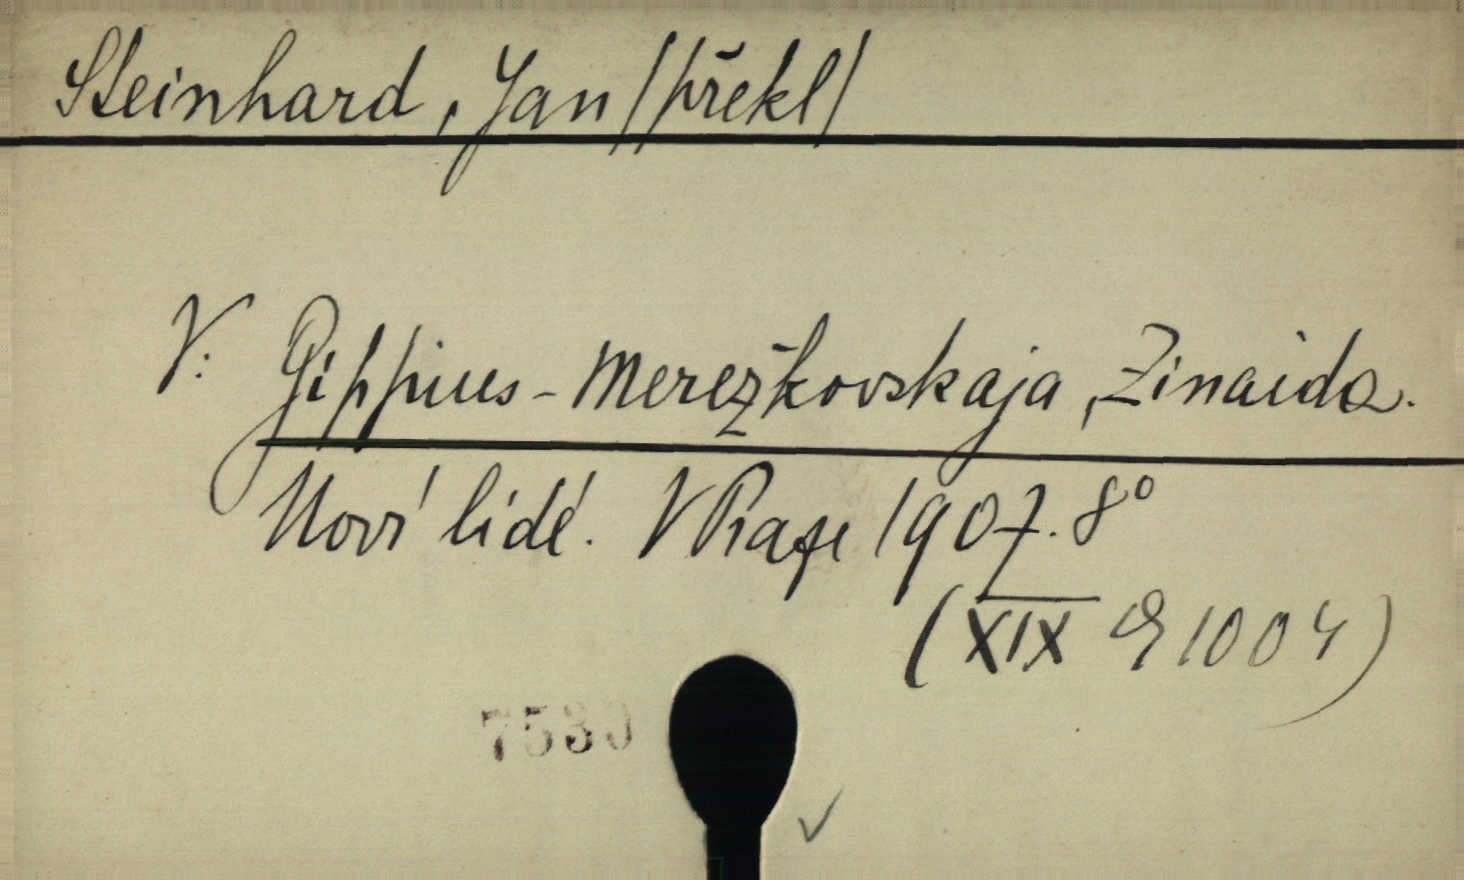 Steinhard, Jan /překl/
V: Gippius-Merežkovskaja, Zinaida.
Noví lidé. V Praze 1907. 8°
(XIX E 1004)
7530